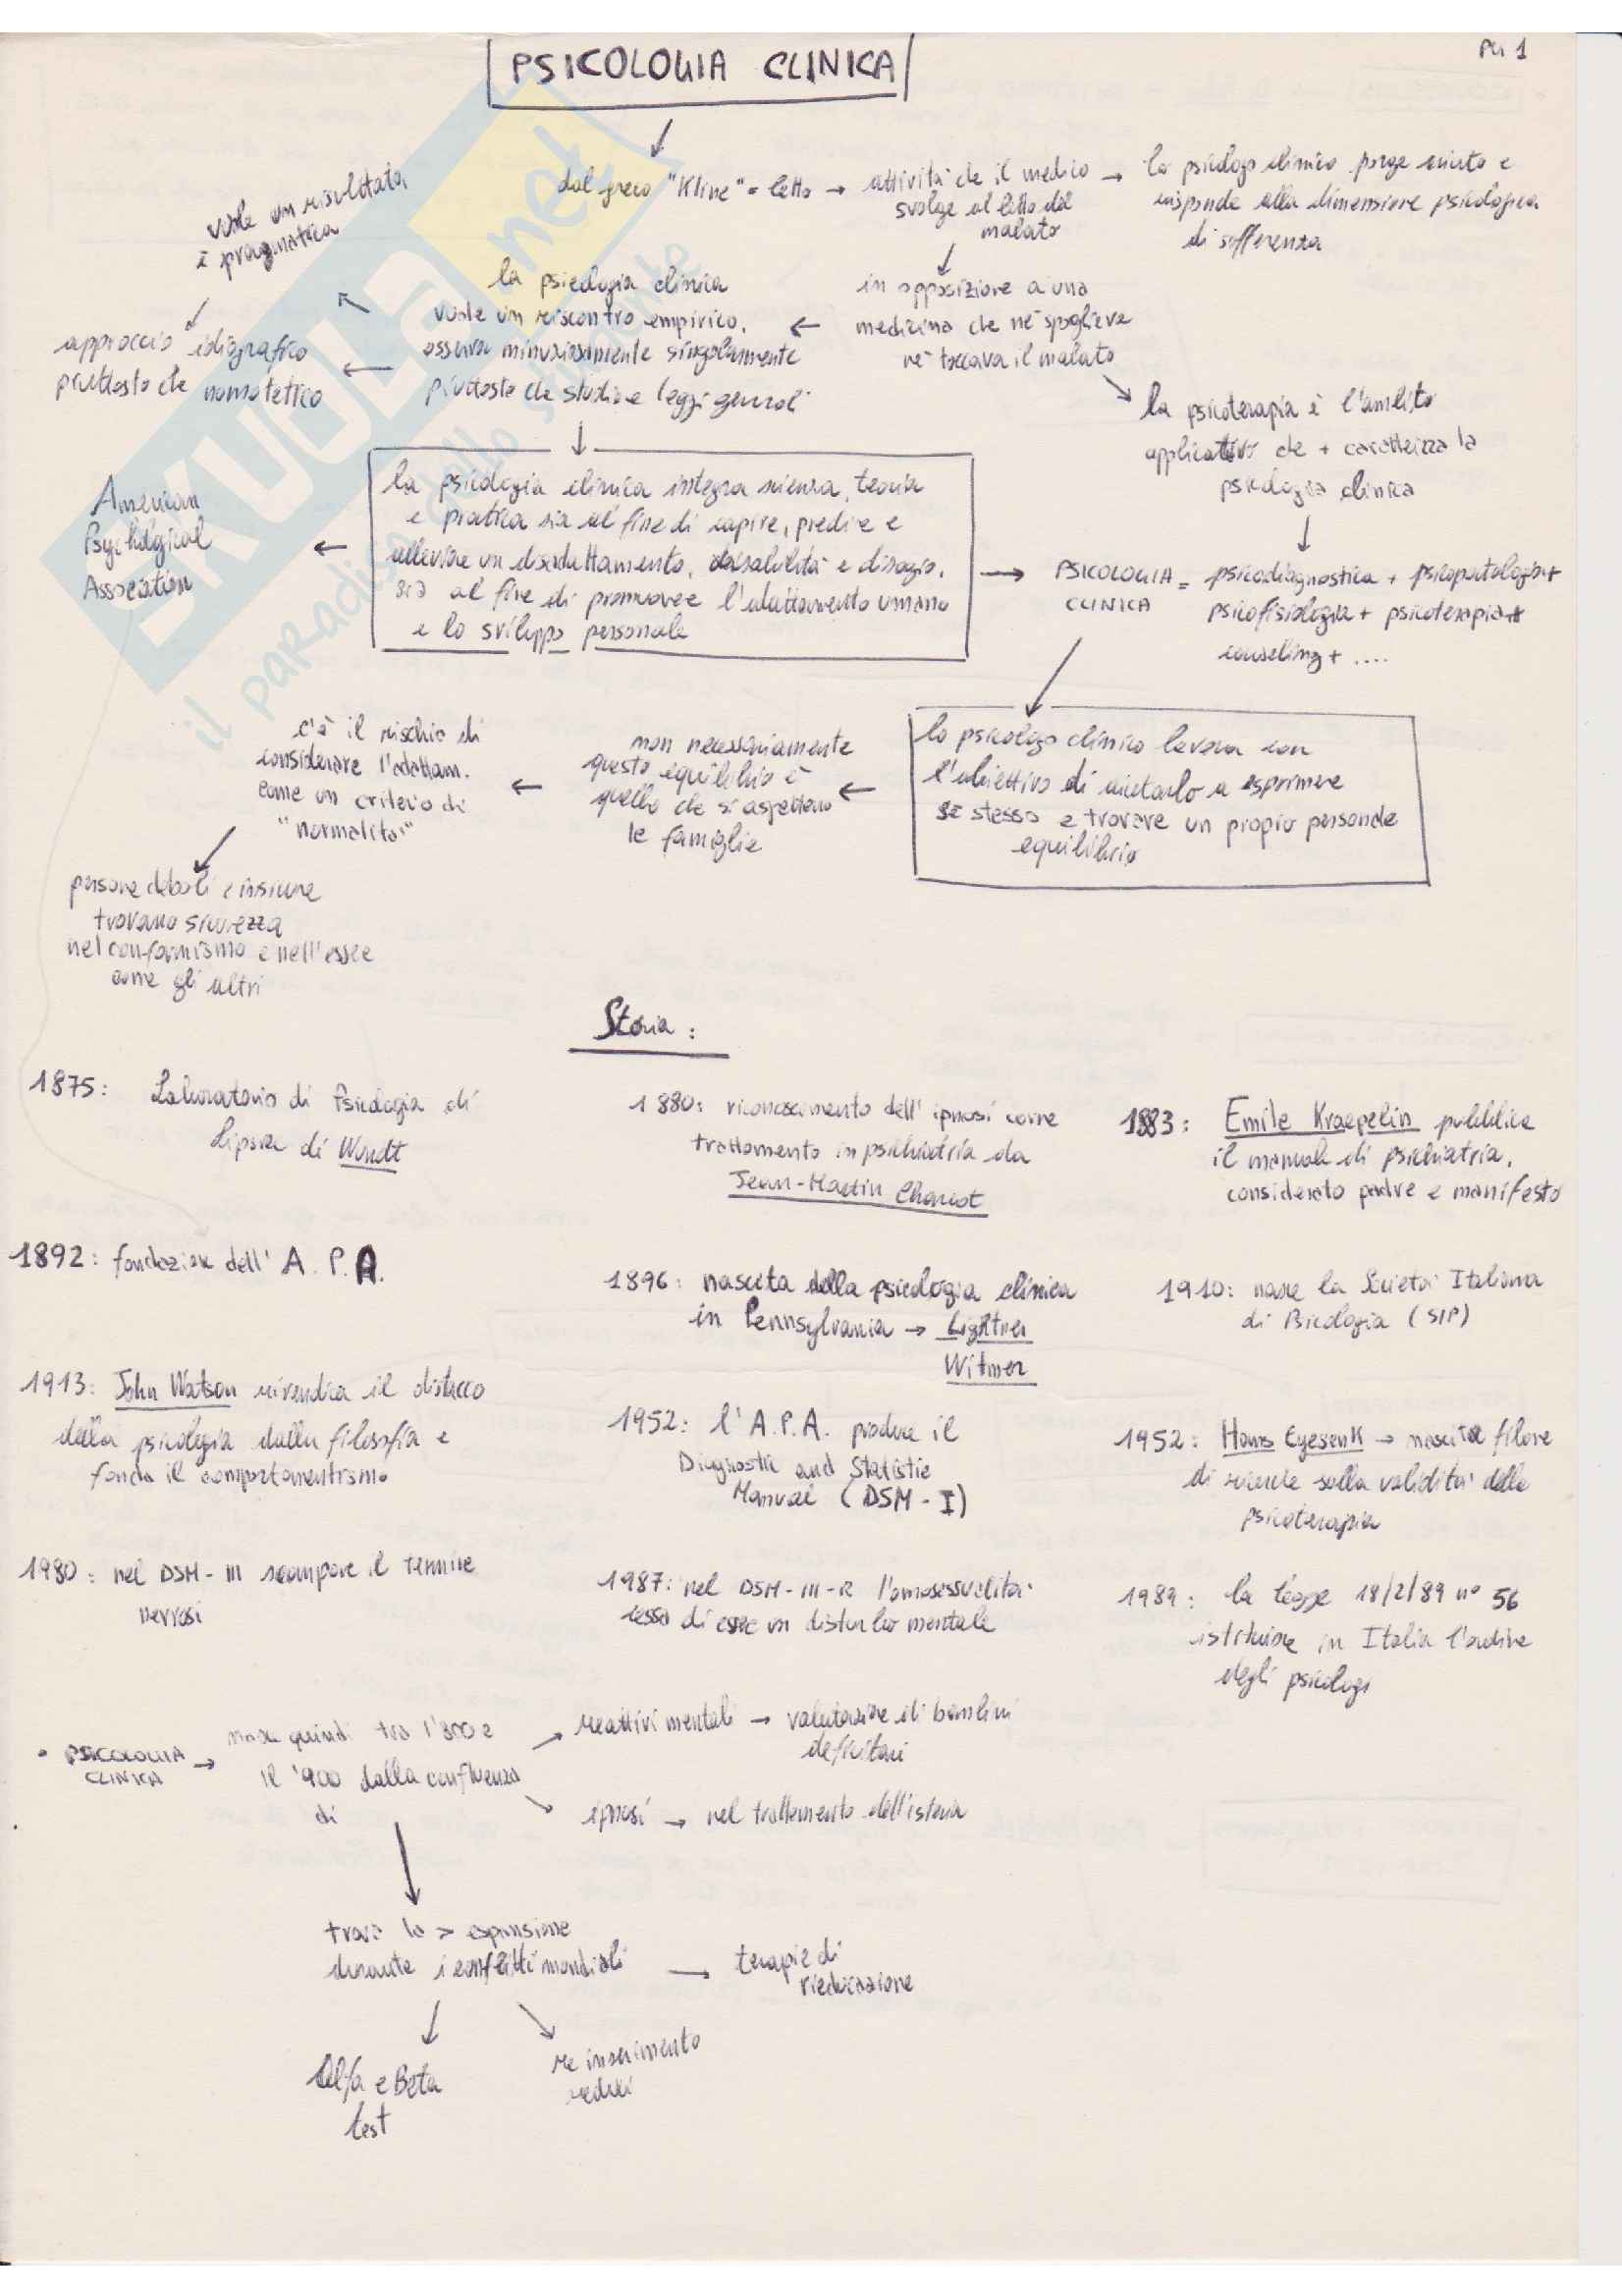 PSICOLOGIA CLINICA
PG 1
dal greco "Kline" = letto → attività che il medico
svolge al letto del
malato
→ lo psicologo clinico porge aiuto e
risponde alla dimensione psicologica
di sofferenza
vuole un risultato,
è pragmatica
la psicologia clinica
vuole un riscontro empirico,
osserva minuziosamente singolarmente
piuttosto che studiare leggi generali
in opposizione a una
medicina che né spogliava
né toccava il malato
approccio idiografico
piuttosto che nomotetico
la psicoterapia è l'ambito
applicativo che + caratterizza la
psicologia clinica
American
Psychological
Association
la psicologia clinica integra scienza, teoria
e pratica sia al fine di capire, predire e
alleviare un disadattamento, disabilità e disagio,
sia al fine di promuovere l'adattamento umano
e lo sviluppo personale
PSICOLOGIA
CLINICA
= psicodiagnostica + psicopatologia +
psicofisiologia + psicoterapia +
counseling + ....
c'è il rischio di
considerare l'adattam.
come un criterio di
"normalità"
non necessariamente
questo equilibrio è
quello che si aspettano
le famiglie
lo psicologo clinico lavora con
l'obiettivo di aiutarlo a esprimere
se stesso e trovare un proprio personale
equilibrio
persone deboli e insicure
trovano sicurezza
nel conformismo e nell'essere
come gli altri
Storia :
1875: Laboratorio di Psicologia di
Lipsia di Wundt
1880: riconoscimento dell'ipnosi come
trattamento in psichiatria da
Jean-Martin Charcot
1883: Emile Kraepelin pubblica
il manuale di psichiatria,
considerato padre e manifesto
1892: fondazione dell'A.P.A.
1896: nascita della psicologia clinica
in Pennsylvania → Lightner
Witmer
1910: nasce la Società Italiana
di Psicologia (SIP)
1913: John Watson rivendica il distacco
della psicologia dalla filosofia e
fonda il comportamentismo
1952: l'A.P.A. produce il
Diagnostic and Statistic
Manual (DSM-I)
1952: Hans Eysenk → nascita filone
di ricerche sulla validità della
psicoterapia
1980: nel DSM-III scompare il termine
nevrosi
1987: nel DSM-III-R l'omosessualità
cessa di essere un disturbo mentale
1989: la legge 18/2/89 n° 56
istituisce in Italia l'ordine
degli psicologi
• PSICOLOGIA
CLINICA
→ nasce quindi tra l'800 e
il '900 dalla confluenza
di
reattivi mentali → valutazione di bambini
deficitari
ipnosi → nel trattamento dell'isteria
trova la > espansione
durante i conflitti mondiali
→ terapie di
rieducazione
Alfa e Beta
test
reinserimento
reduci
SKUOLA.net
il paradiso dello studente